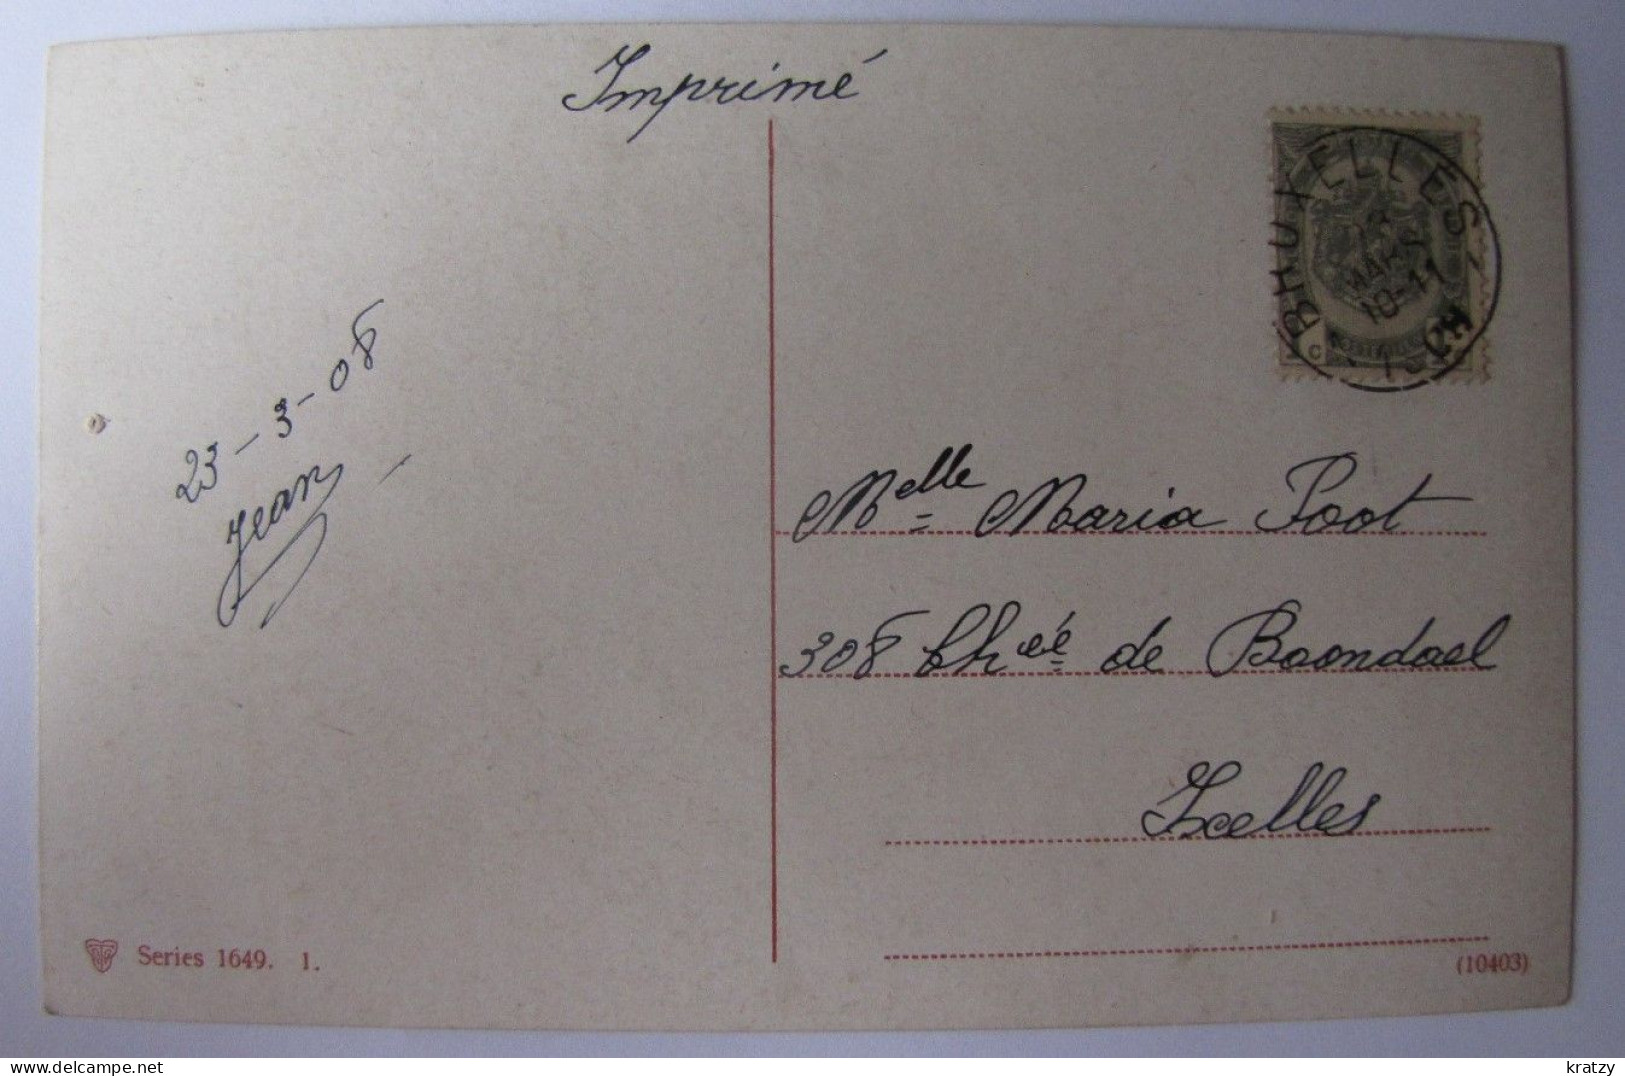 Imprimé
BRUXELLES 1
MARS
10-11
23-3-08
Jean
Melle Maria Poot
308 Chée de Boondael
Ixelles
Series 1649. 1.
(10403)
delcampe.net
kratzy